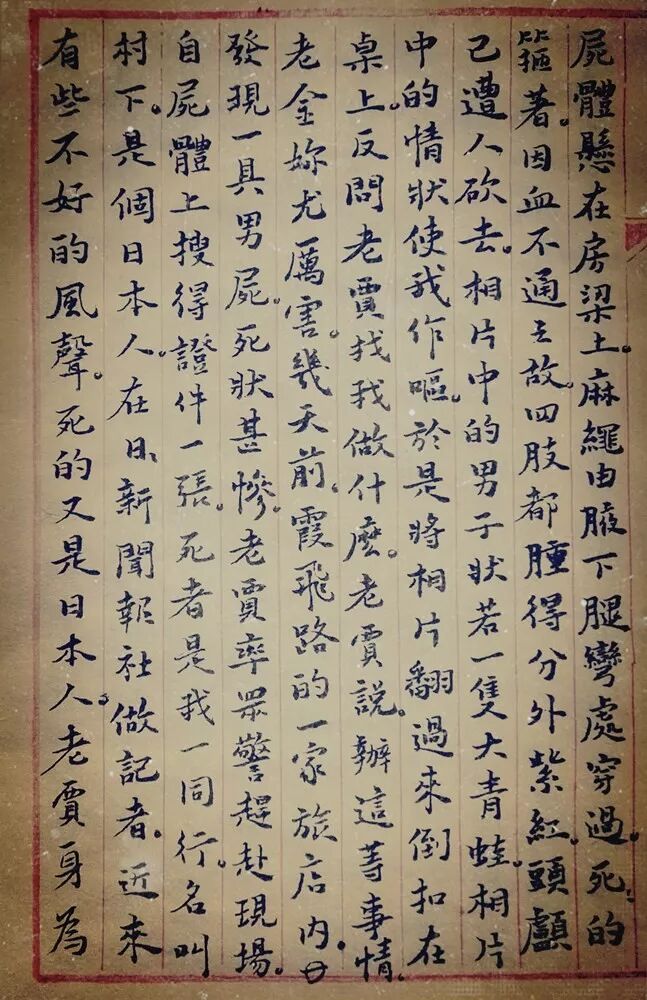 屍體懸在房梁上。麻繩由腋下腿彎處穿過。死〻的
箍著。因血不通之故。四肢都腫得分外紫紅。頭顱
已遭人砍去。相片中的男子狀若一隻大青蛙。相片
中的情狀使我作嘔。於是將相片翻過來倒扣在
桌上。反問老賈找我做什麼。老賈說。辦這等事情。
老金妳尤厲害。幾天前。霞飛路的一家旅店內。
發現一具男屍。死狀甚慘。老賈率眾警趕赴現場。
自屍體上搜得證件一張。死者是我一同行。名叫
村下。是個日本人。在日〻新聞報社做記者。近來
有些不好的風聲。死的又是日本人。老賈身為